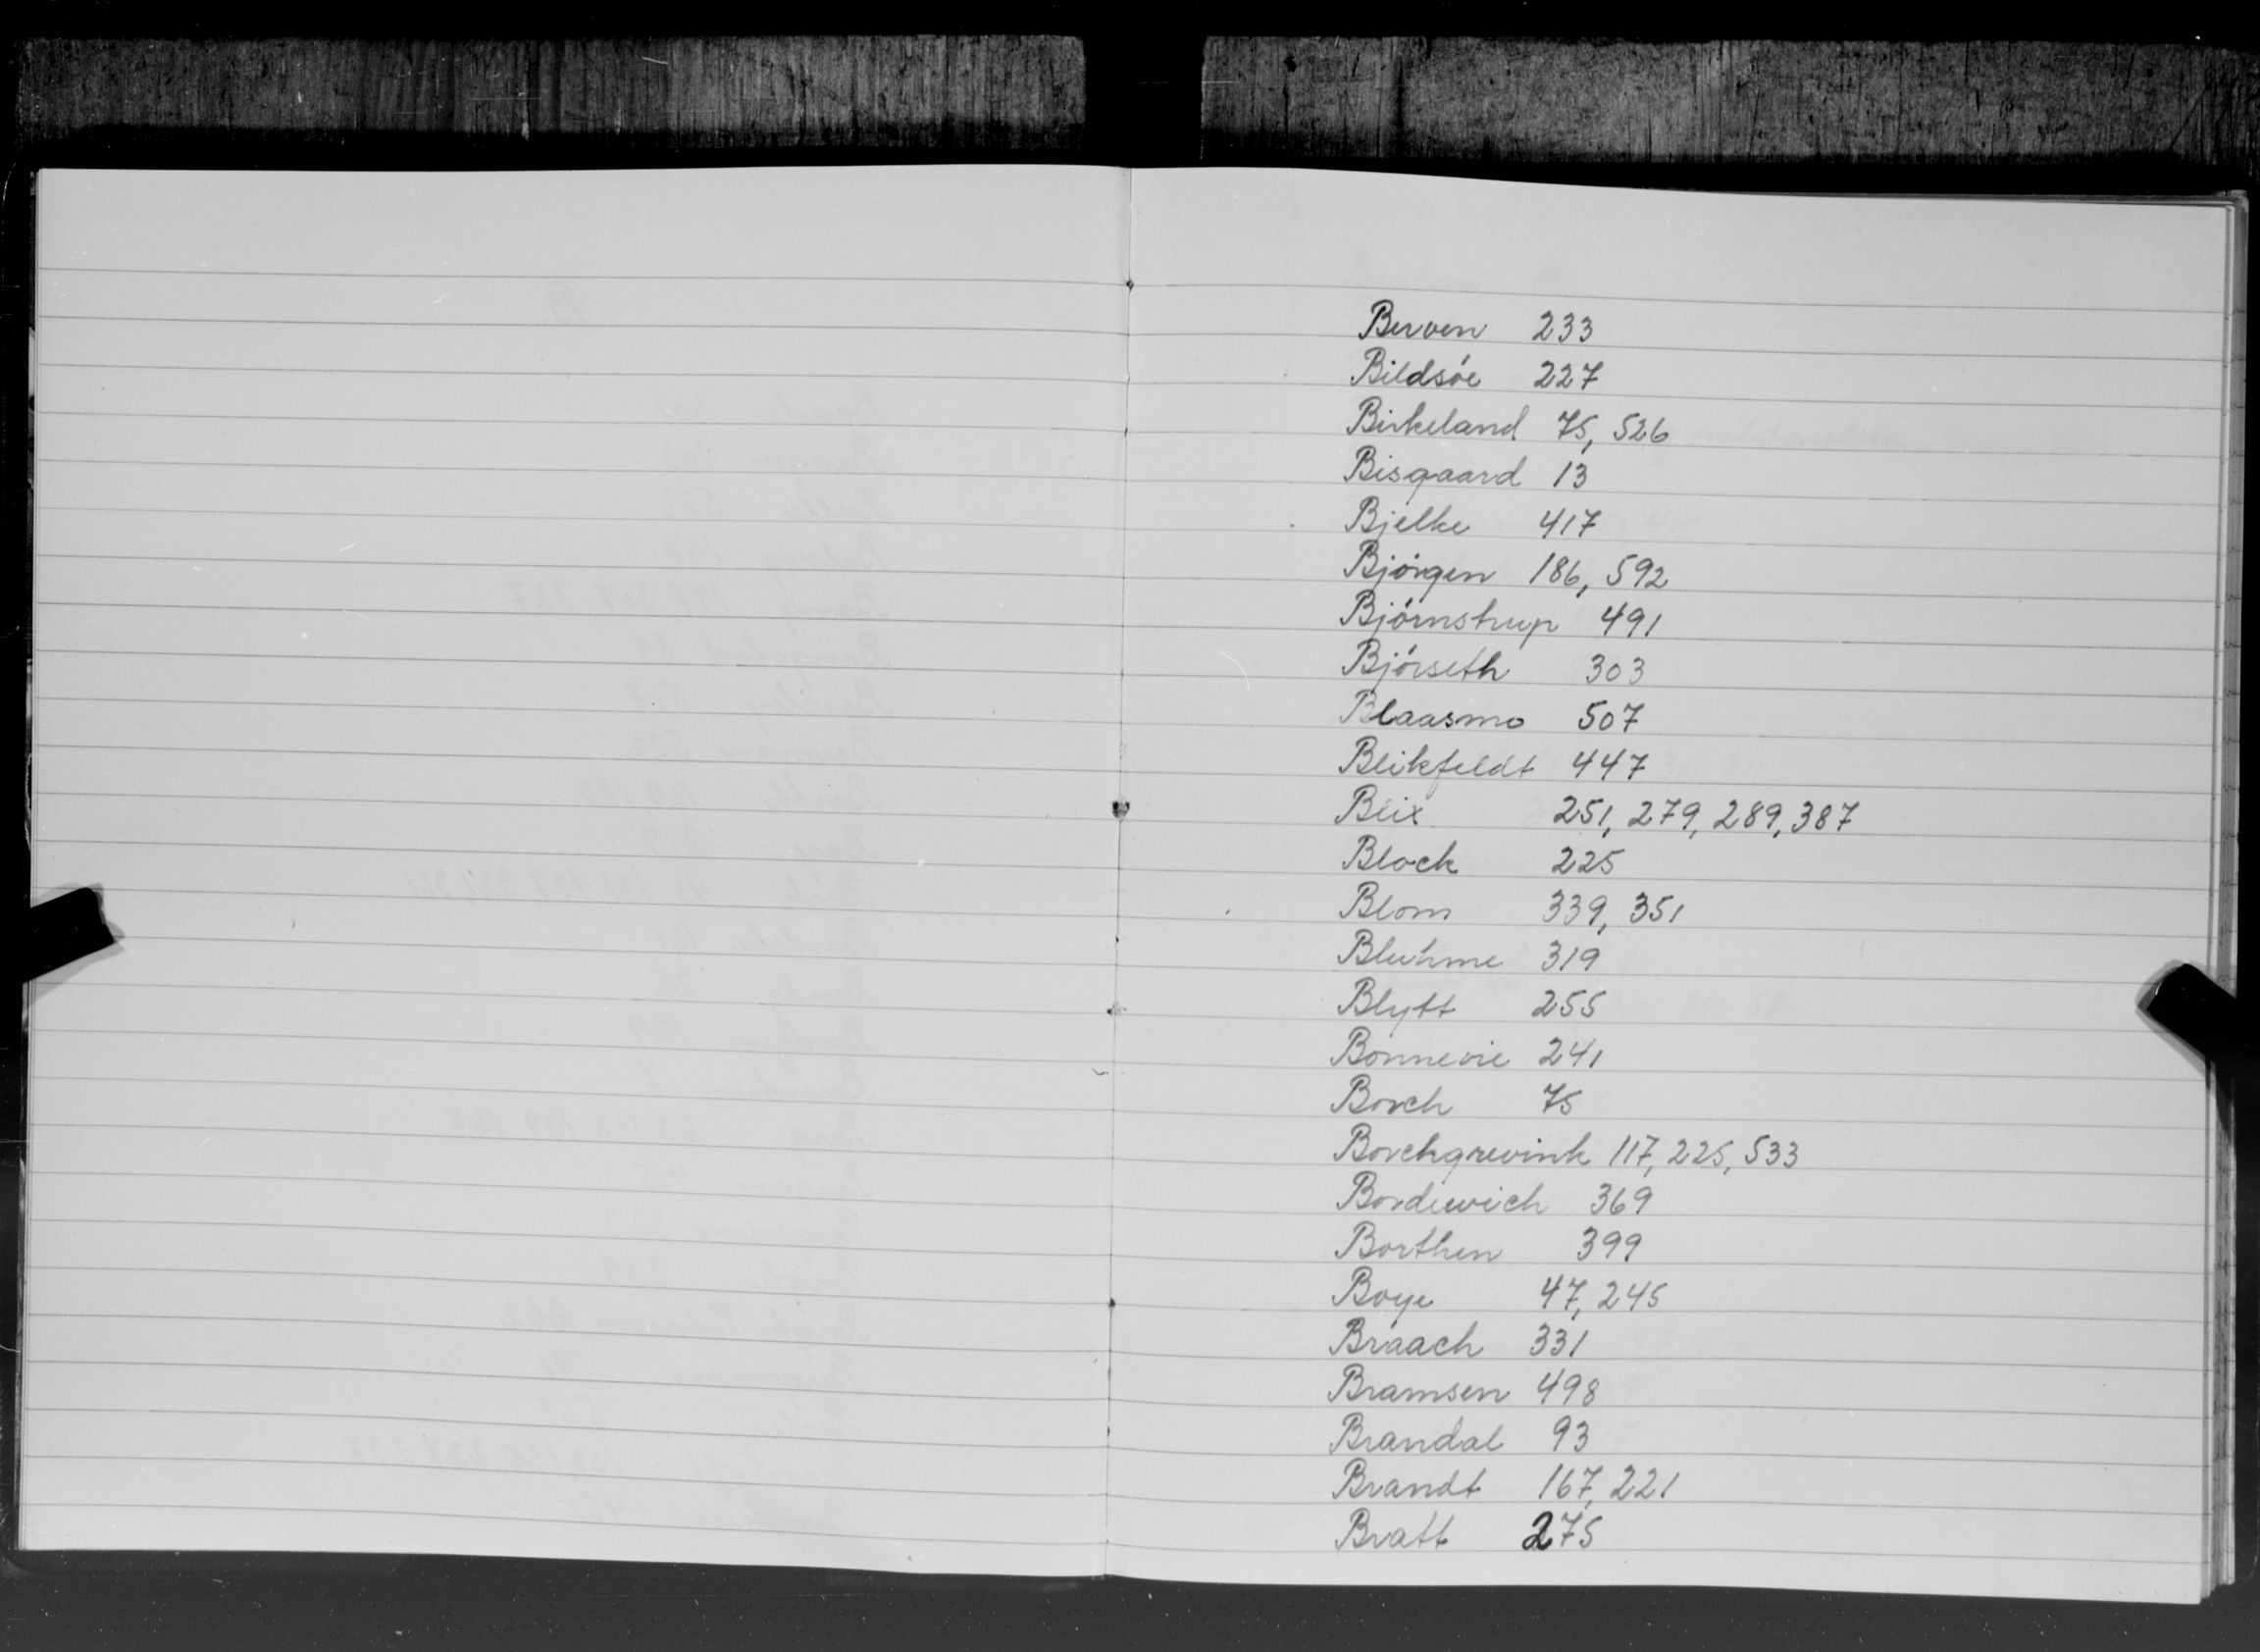 Berven 233
Bildsöe 227
Birkeland 75, 526
Bisgaard 13
Bjelke 417
Björgen 186, 592
Björnstrup 491
Björseth 303
Blaasmo 507
Blikfeldt 447
Blix 251, 279, 289, 387
Block 225
Blom 339, 351
Bluhme 319
Blytt 255
Bonnevie 241
Borch 75
Borchgrevink 117, 225, 533
Bordewich 369
Borthen 399
Boye 47, 245
Braach 331
Bramsen 498
Brandal 93
Brandt 167, 221
Bratt 275